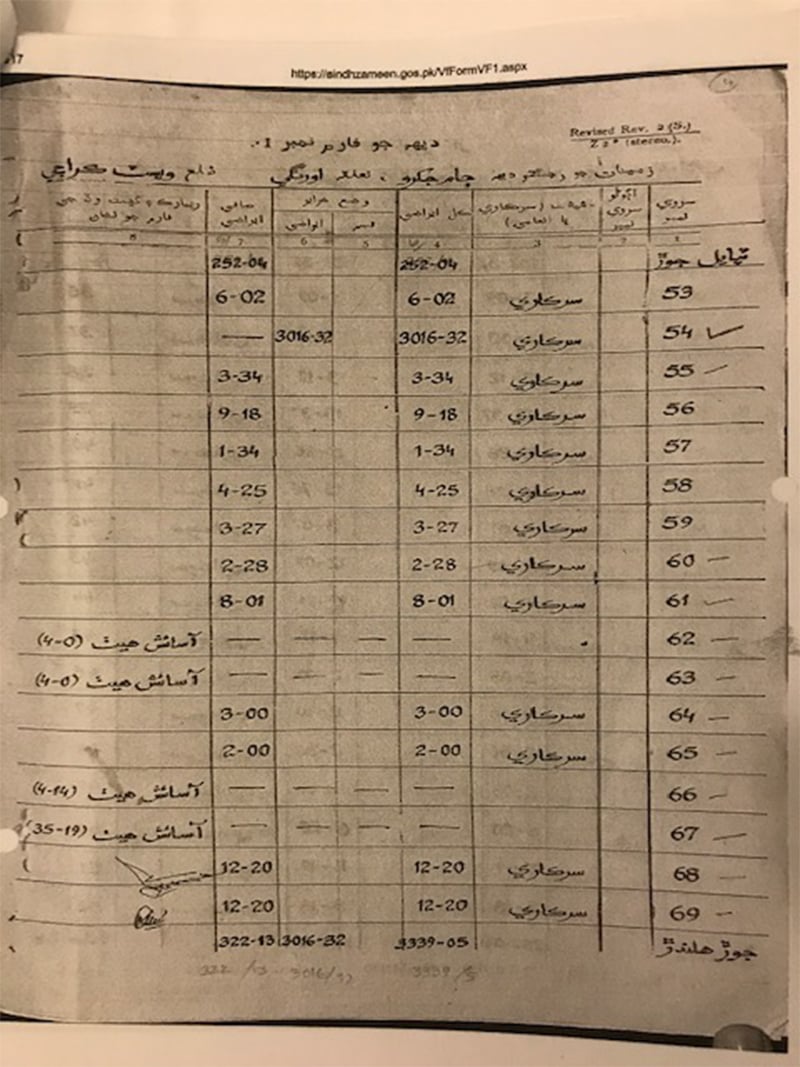 https://sindhzameen.gos.pk/VfFormVF1.aspx
Revised Rev. 2 (S.)
ديهہ جو فارم نمبر 1.
ديهہ ، تعلقہ اورنگي ضلع ويسٽ ڪراچي
سروي نمبر سروي نمبر ڪل ايراضي نمبر ايراضي صافي ايراضي
1 2 3 4 5 6 7 8
جوڙ 252-04 252-04
53 سرڪاري 6-02 6-02
54 سرڪاري 3016-32 3016-32 —
55 سرڪاري 3-34 3-34
56 سرڪاري 9-18 9-18
57 سرڪاري 1-34 1-34
58 سرڪاري 4-25 4-25
59 سرڪاري 3-27 3-27
60 سرڪاري 2-28 2-28
61 سرڪاري 8-01 8-01
62 — — — — آسائش هيٺ (4-0)
63 — — — — آسائش هيٺ (4-0)
64 سرڪاري 3-00 3-00
65 سرڪاري 2-00 2-00
66 — — — — آسائش هيٺ (4-14)
67 — — — — آسائش هيٺ (35-19)
68 سرڪاري 12-20 12-20
69 سرڪاري 12-20 12-20
جوڙ هلندڙ 3339-05 3016-32 322-13